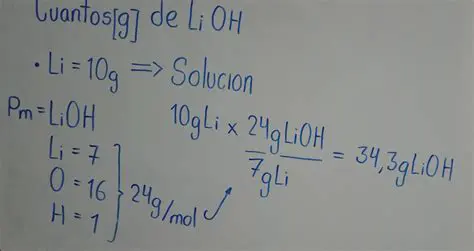 Cuantos[g] de LiOH
• Li = 10g => Solucion
Pm = LiOH
10gLi x 24gLiOH / 7gLi = 34,3gLiOH
Li = 7
O = 16
H = 1
24g/mol